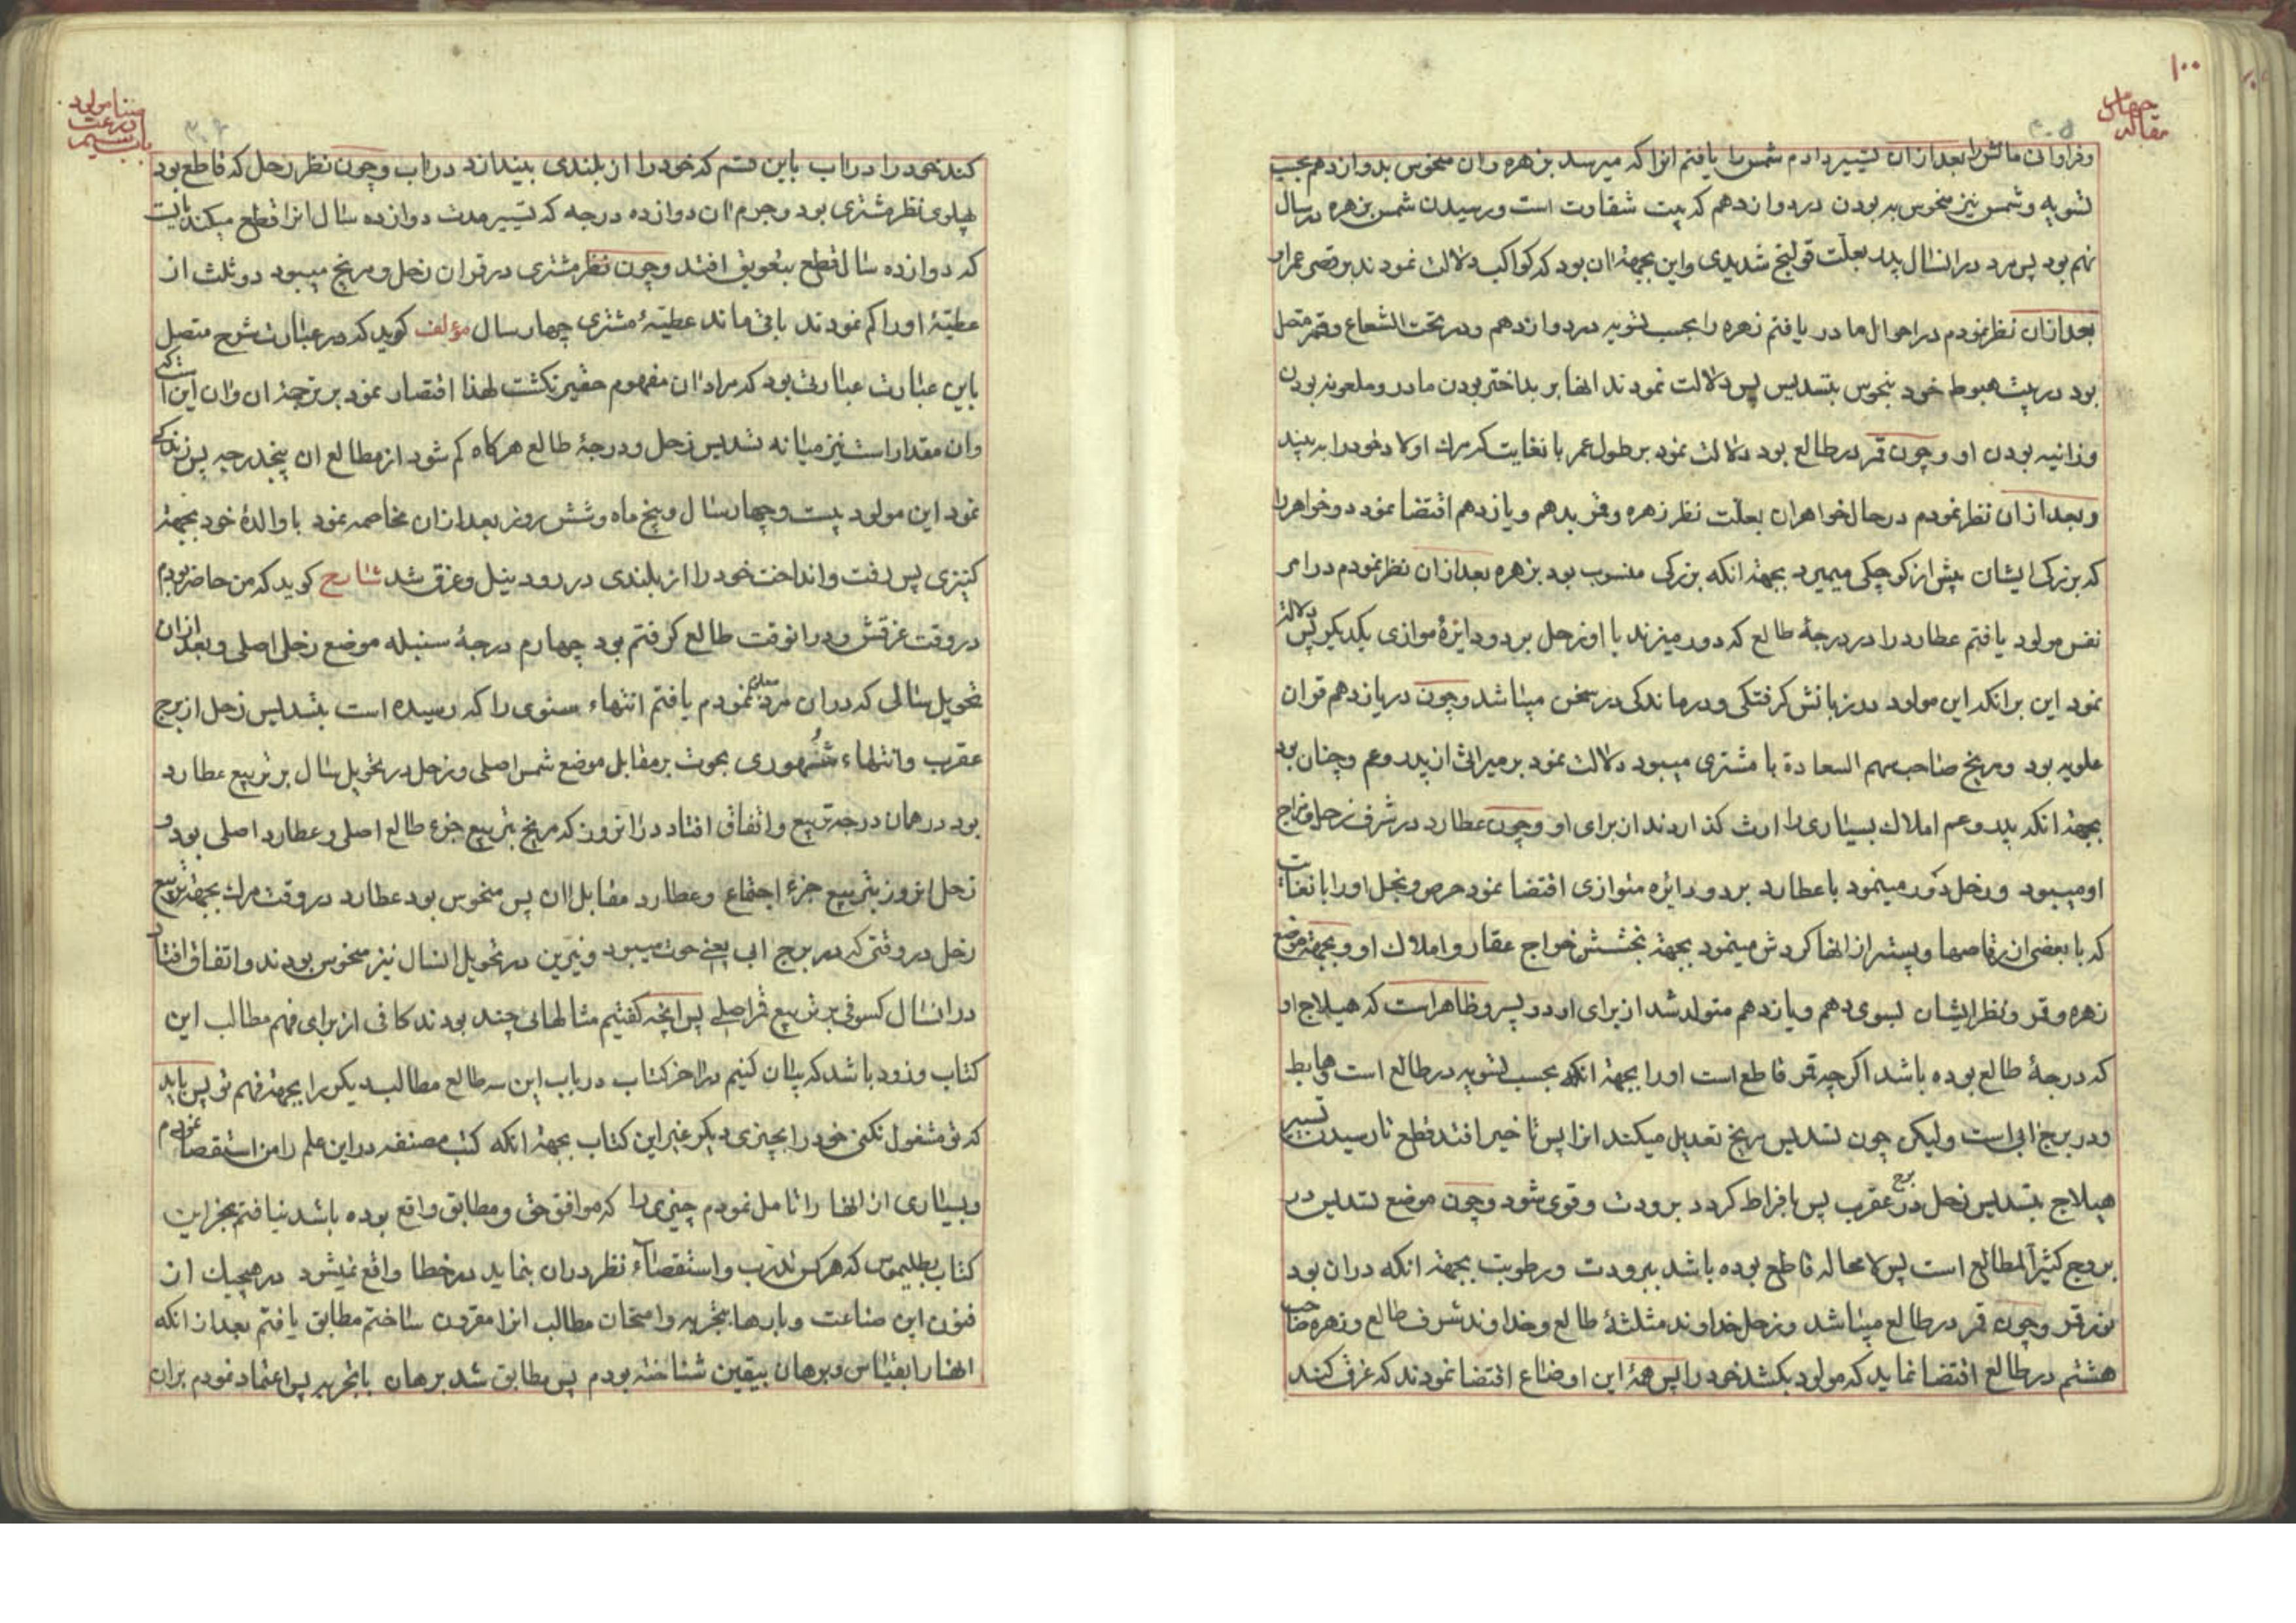 ۱۰۰
مقاله چهارم
۳۰۵
و فراوانی مالش را بعد از ان تسییر دادم شمس را یافتم انرا که میرسد بزهره و ان منحوس بدوازدهم بحسب
تسویه و شمس نیز منحوس به بودن در دوازدهم که بیت شقاوت است و رسیدن شمس بزهره در سال
نهم بود پس مرد در انسال پدر بعلّت قولنج شدیدی و این بجهة ان بود که کواکب دلالت نمودند بر قصی عمر او
بعد ازان نظر نمودم در احوال مادر یافتم زهره را بحسب تسویه در دوازدهم و در تحت الشعاع و قمر متصل
بود در بیت هبوط خود بنحوس بتسدیس پس دلالت نمودند انها بر بداختر بودن مادر و ملعونه بودن
و زانیه بودن او و چون قمر در طالع بود دلالت نمود بر طول عمر با نغایت که مرک اولاد خود را به بیند
و بعد ازان نظر نمودم در حال خواهران بعلّت نظر زهره و قمر بدهم و یازدهم اقتضا نمود دو خواهر را
که بزرکی ایشان پیش از کوچکی میمیرد بجهة انکه بزرکی منسوب بود بزهره بعد ازان نظر نمودم در امر
نفس مولود یافتم عطارد را در درجهٔ طالع که دور میزند با او زحل بر دو دایرهٔ موازی یکدیکر پس دلالت
نمود این بر انکه این مولود در زبانش کرفتکی و درماندکی در سخن میباشد و چون در یازدهم قران
علویه بود و مریخ صاحب سهم السعادة با مشتری میبود دلالت نمود بر میراث از پدر و عم و چنان بود
بجهة انکه پدر و عم املاک بسیاری را ارث کذاردند از برای او و چون عطارد در شرف زحل و مزاج
او میبود و زحل دور مینمود با عطارد بر دو دایره متوازی اقتضا نمود حرص و بخل او را با نغایت
که با بعضی از رقاصها و پیشتر از انها کردش مینمود بجهة بخشش خواج عقار و املاک او و بجهة موضع
زهره و قمر و نظر ایشان بسوی دهم و یازدهم متولد شد از برای او دو پسر و ظاهر است که هیلاج او
که درجهٔ طالع بوده باشد اکر چه قمر قاطع است او را بجهة انکه بحسب تسویه در طالع است هابط
و در برج ابی است و لیکن چون تسدیس مریخ تعدیل میکند انرا پس تاخیر افتد قطع تا رسیدن تسییر
هیلاج بتسدیس زحل در برج عقرب پس بافراط کردد برودت و قوی شود و چون موضع تسدیس در
بروج کثیر المطالع است پس لا محاله قاطع بوده باشد ببرودت و رطوبت بجهة انکه در ان بود
نور قمر و چون قمر در طالع میباشد و زحل خداوند مثلثهٔ طالع و خداوند شرف طالع و زهره صاحب
هشتم در طالع اقتضا نماید که مولود بکشد خود را پس همهٔ این اوضاع اقتضا نمودند که غرق کنند
باب سیم
۳۰۶
کند خود را در اب باین قسم که خود را از بلندی بیندازد در اب و چون نظر زحل که قاطع بود
پهلوی نظر مشتری بود و جرم ان دوازده درجه که تسییر مدت دوازده سال انرا قطع میکند بایت
که دوازده سال قطع بتعویق افتد و چون نظر مشتری در قران زحل و مریخ میبود دو ثلث از
عطیّهٔ او را کم نمودند باقی ماند عطیّهٔ مشتری چهار سال مؤلف کوید که در عبارت شرح متصل
باین عبارت عبارتی بود که مراد ان مفهوم حقیر نکشت لهذا اقتصار نمود بر ترجمهٔ ان و ان این است که
و ان مقدار است نیز میانه تسدیس زحل و درجهٔ طالع هرکاه کم شود از مطالع ان پنجدرجه پس زندکی
نمود این مولود بیست و چهار سال و پنج ماه و شش روز بعد ازان مخاصمه نمود با والدهٔ خود بجهة
کنیزی پس رفت و انداخت خود را از بلندی در رود نیل و غرق شد شارح کوید که من حاضر بودم
در وقت غرقش و در انوقت طالع کرفتم بود چهارم درجهٔ سنبله موضع زحل اصلی و بعد ازان
تحویل سالی که در ان مرد معلوم نمودم یافتم انتهاء سنوی را که رسیده است بتسدیس زحل از برج
عقرب و انتهاء شهوری بحوت بر مقابل موضع شمس اصلی و زحل در تحویل سال بر تربیع عطارد
بود در همان درجه تربیع و اتفاق افتاد در انروز که مریخ بتربیع جزء طالع اصلی و عطارد اصلی بود و
زحل انروز بتربیع جزء اجتماع و عطارد مقابل ان پس منحوس بود عطارد در وقت مرک بجهة تربیع
زحل در وقتی که در برج ابی یعنی حوت میبود و نیرین در تحویل انسال نیز منحوس بودند و اتفاق افتاد
در انسال کسوفی بر تربیع قمر اصلی پس انچه کفتیم مثالهائی چند بودند کافی از برای فهم مطالب این
کتاب و زود باشد که بیان کنیم در اخر کتاب در باب این سه طالع مطالب دیکر را بجهة فهم تو پس باید
که تو مشغول نکنی خود را بچیزی دیکر غیر این کتاب بجهة انکه کتب مصنفه در این علم را من استقصا نمودم
و بسیاری از انها را تامل نمودم چیزی را که موافق حق و مطابق واقع بوده باشد نیافتم بجز این
کتاب بطلیموس که هر کس تدرب و استقصاء نظر در ان بنماید در خطا واقع نمیشود در هیچیک از
فنون این صناعت و بارها بتجربه و امتحان مطالب انرا مقرون ساختم مطابق یافتم بعد از انکه
انها را بقیاس و برهان بیقین شناخته بودم پس مطابق شد برهان با تجربه پس اعتماد نمودم بران